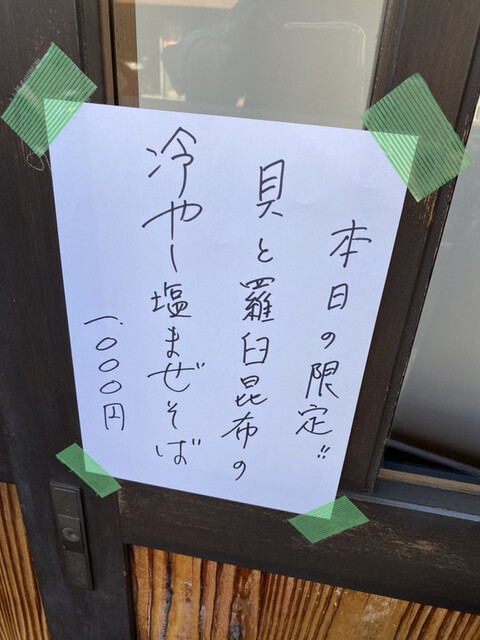 本日の限定!!
貝と羅臼昆布の
冷やし塩まぜそば
一、〇〇〇円